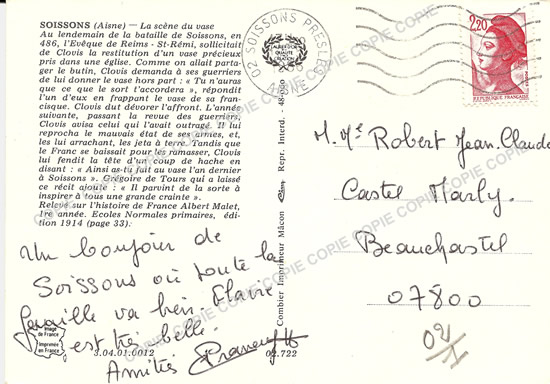 SOISSONS (Aisne) — La scène du vase
Au lendemain de la bataille de Soissons, en
486, l'Evêque de Reims - St-Rémi, sollicitait
de Clovis la restitution d'un vase précieux
pris dans une église. Comme on allait parta-
ger le butin, Clovis demanda à ses guerriers
de lui donner le vase hors part : « Tu n'auras
que ce que le sort t'accordera », répondit
l'un d'eux en frappant le vase de sa fran-
cisque. Clovis dut dévorer l'affront. L'année
suivante, passant la revue des guerriers,
Clovis avisa celui qui l'avait outragé. Il lui
reprocha le mauvais état de ses armes, et,
les lui arrachant, les jeta à terre. Tandis que
le Franc se baissait pour les ramasser, Clovis
lui fendit la tête d'un coup de hache en
disant : « Ainsi as-tu fait au vase l'an dernier
à Soissons ». Grégoire de Tours qui a laissé
ce récit ajoute : « Il parvint de la sorte à
inspirer à tous une grande crainte ».
Relevé sur l'histoire de France Albert Malet,
1re année. Ecoles Normales primaires, édi-
tion 1914 (page 33).
Un bonjour de
Soissons où toute la
famille va bien. Flavie
est très belle.
Amitiés
Image de France
Imprimée en France
3.04.01.0012
02.722
Combier Imprimeur Mâcon
Repr. Interd.
02 SOISSONS PRESLES
AISNE
2,20
REPUBLIQUE FRANÇAISE
M. Me Robert Jean-Claude
Castel Marly.
Beauchastel
07800
02/1
COPIE COPIE COPIE COPIE COPIE COPIE COPIE